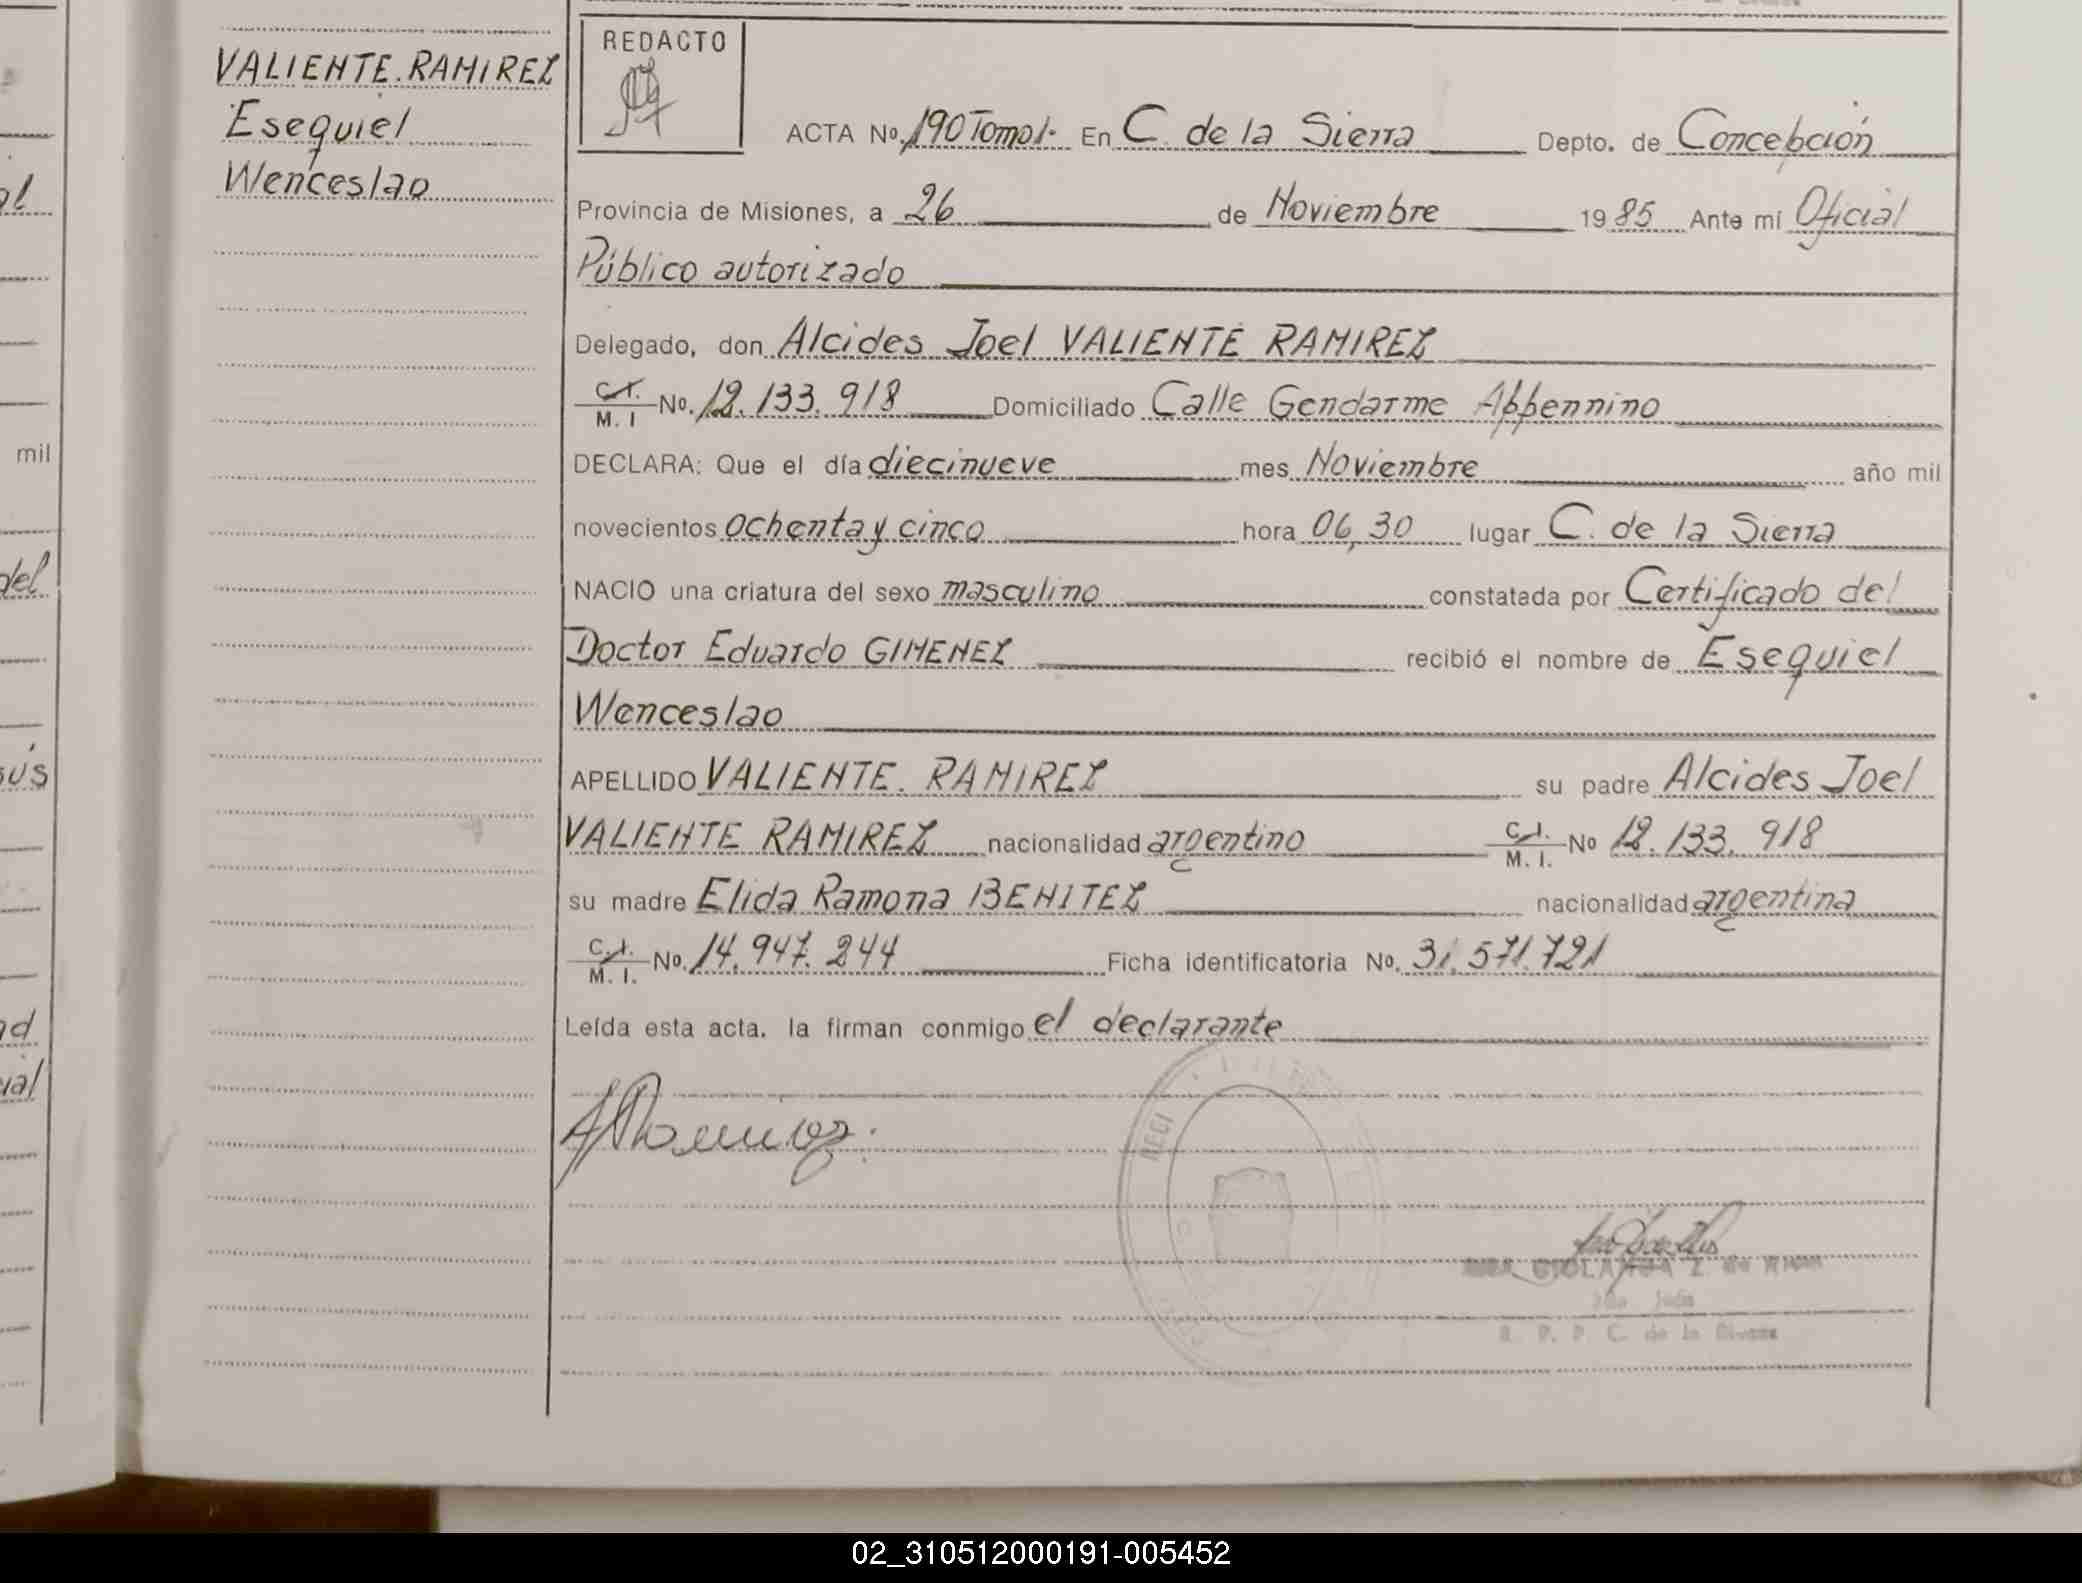 VALIENTE.RAMIREZ
Esequiel
Wenceslao
al
mil
del
sús
ad
ial
REDACTO
ACTA Nº. 190 Tomo 1. En C. de la Sierra Depto. de Concepción
Provincia de Misiones, a 26 de Noviembre 1985 Ante mí Oficial
Público autorizado
Delegado, don Alcides Joel VALIENTE RAMIREZ
C.I.
M. I No. 12.133.918 Domiciliado Calle Gendarme Appennino
DECLARA: Que el día diecinueve mes Noviembre año mil
novecientos ochenta y cinco hora 06,30 lugar C. de la Sierra
NACIO una criatura del sexo masculino constatada por Certificado del
Doctor Eduardo GIMENEZ recibió el nombre de Esequiel
Wenceslao
APELLIDO VALIENTE. RAMIREZ su padre Alcides Joel
VALIENTE RAMIREZ nacionalidad argentino C.I.
M. I. No 12.133.918
su madre Elida Ramona BENITEZ nacionalidad argentina
C.I.
M. I. No. 14.947.244 Ficha identificatoria No. 31.571.721
Leída esta acta. la firman conmigo el declarante
REGI
R. P. P. C. de la Sierra
02_310512000191-005452